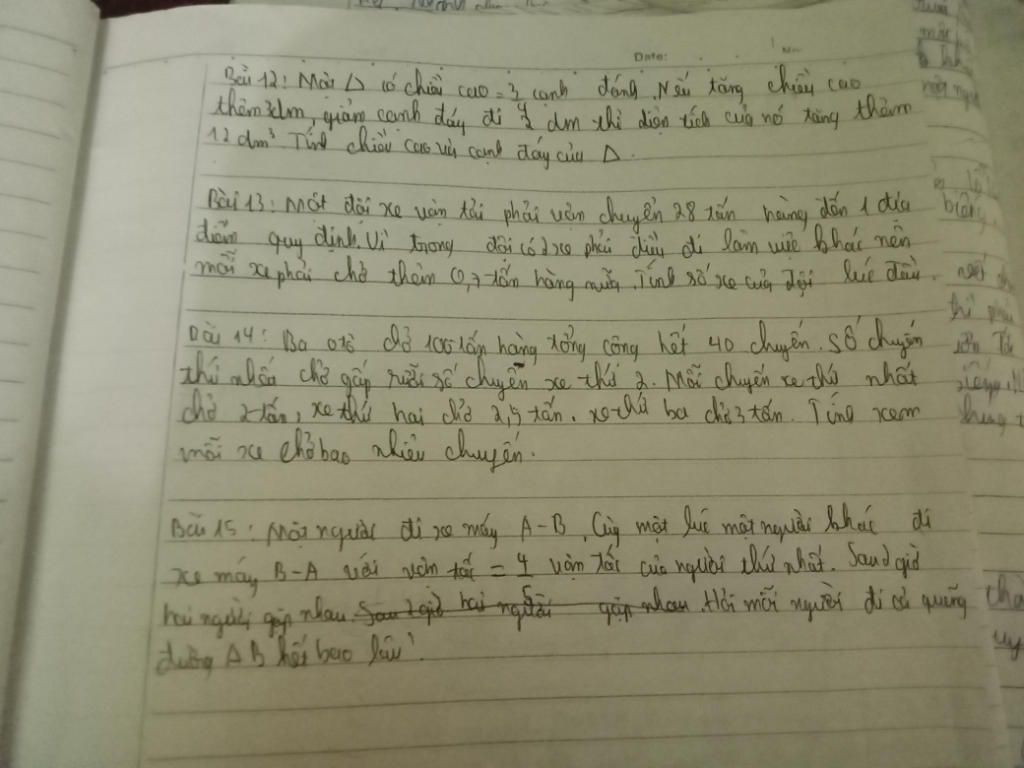 Date:
Bài 12: Một Δ có chiều cao = 3 cạnh đáy. Nếu tăng chiều cao
thêm 3dm, giảm cạnh đáy đi dm thì diện tích của nó tăng thêm
12 dm³ Tính chiều cao và cạnh đáy của Δ.
Bài 13: Một đội xe vận tải phải vận chuyển 28 tấn hàng đến 1 địa
điểm quy định. Vì trong đội có 2 xe phải điều đi làm việc khác nên
mỗi xe phải chở thêm 0,7 tấn hàng nữa. Tính số xe của đội lúc đầu.
Bài 14: Ba ôtô chở 100 tấn hàng tổng cộng hết 40 chuyến. Số chuyến
thứ nhất chở gấp rưỡi số chuyến xe thứ 2. Mỗi chuyến xe thứ nhất
chở 2 tấn, xe thứ hai chở 2,5 tấn. xe thứ ba chở 3 tấn. Tính xem
mỗi xe chở bao nhiêu chuyến.
Bài 15: Một người đi xe máy A-B. Cùng một lúc một người khác đi
xe máy B-A với vận tốc = 4/5 vận tốc của người thứ nhất. Sau 2 giờ
hai người gặp nhau. Sau 2 giờ hai người gặp nhau. Hỏi mỗi người đi cả quãng
đường AB hết bao lâu?